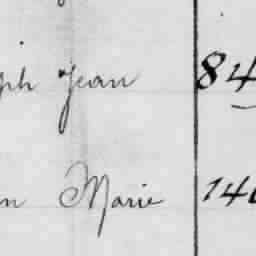 ph Jean 84
n Marie 140